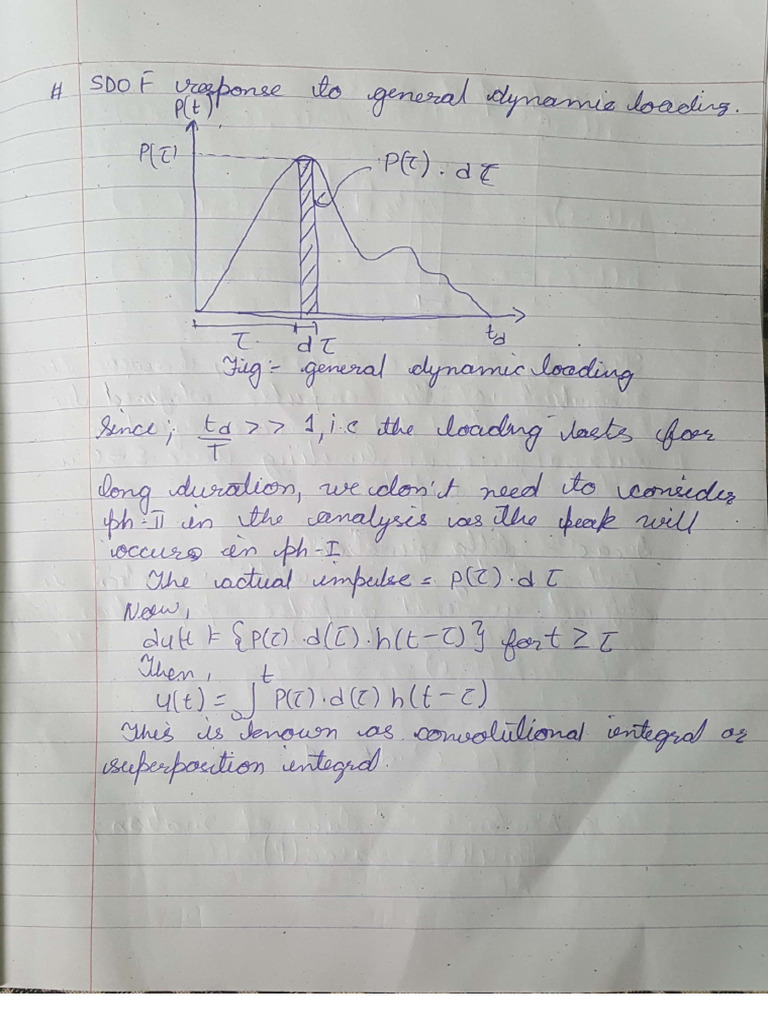 # SDOF response to general dynamic loading.
P(t)
P(τ)
P(τ). dτ
τ. dτ
td
Fig:- general dynamic loading
Since; td/T >> 1, i.e the loading lasts for
long duration, we don't need to consider
ph-II in the analysis as the peak will
occurs in ph-I
The actual impulse = P(τ).dτ
Now,
du(t) = {P(τ).d(τ).h(t-τ)} for t ≥ τ
Then,
u(t) = ₀∫ᵗ P(τ).d(τ) h(t-τ)
This is known as convolutional integral or
superposition integral.